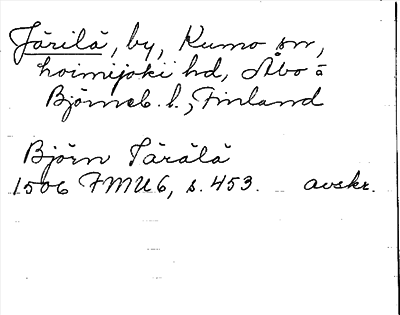 Järilä, by, Kumo sn,
Loimijoki hd, Åbo ō
Björneb. l., Finland
Björn Järälä
1506 FMU6, s. 453. avskr.